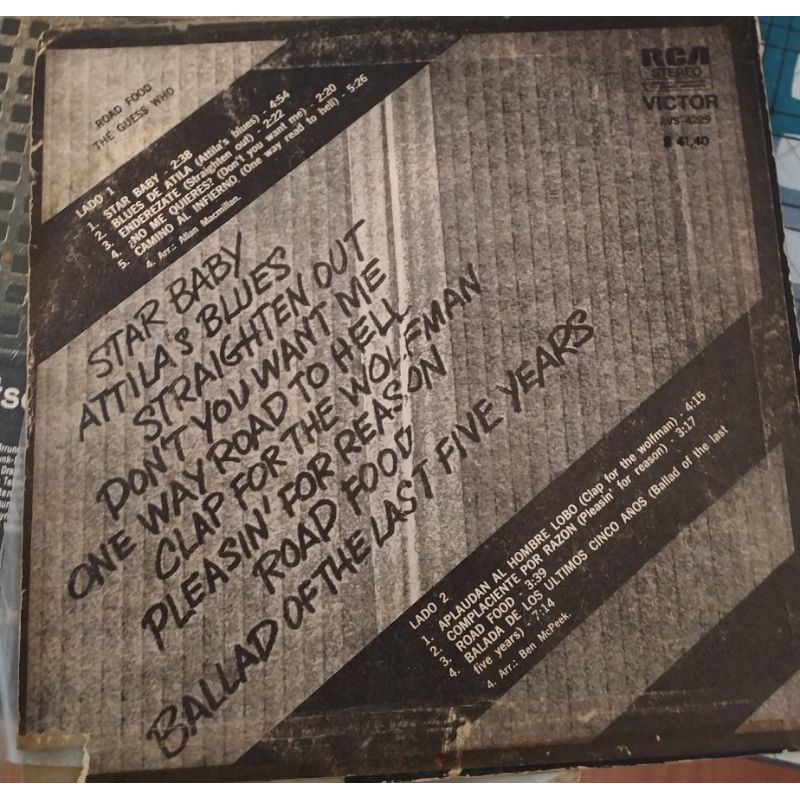 ROAD FOOD
THE GUESS WHO
RCA
STEREO
VICTOR
AVS-4229
$ 41,40
LADO 1
1. STAR BABY - 2:38
2. BLUES DE ATILA (Attila's blues) - 4:54
3. ENDEREZATE (Straighten out) - 2:22
4. ¿NO ME QUIERES? (Don't you want me) - 2:20
5. CAMINO AL INFIERNO (One way read to hell) - 5:26
4. Arr.: Allan Macmillan.
STAR BABY
ATTILA'S BLUES
STRAIGHTEN OUT
DON'T YOU WANT ME
ONE WAY ROAD TO HELL
CLAP FOR THE WOLFMAN
PLEASIN' FOR REASON
ROAD FOOD
BALLAD OF THE LAST FIVE YEARS
LADO 2
1. APLAUDAN AL HOMBRE LOBO (Clap for the wolfman) - 4:15
2. COMPLACIENTE POR RAZON (Pleasin' for reason) - 3:17
3. ROAD FOOD - 3:39
4. BALADA DE LOS ULTIMOS CINCO AÑOS (Ballad of the last
five years) - 7:14
4. Arr.: Ben McPeek.